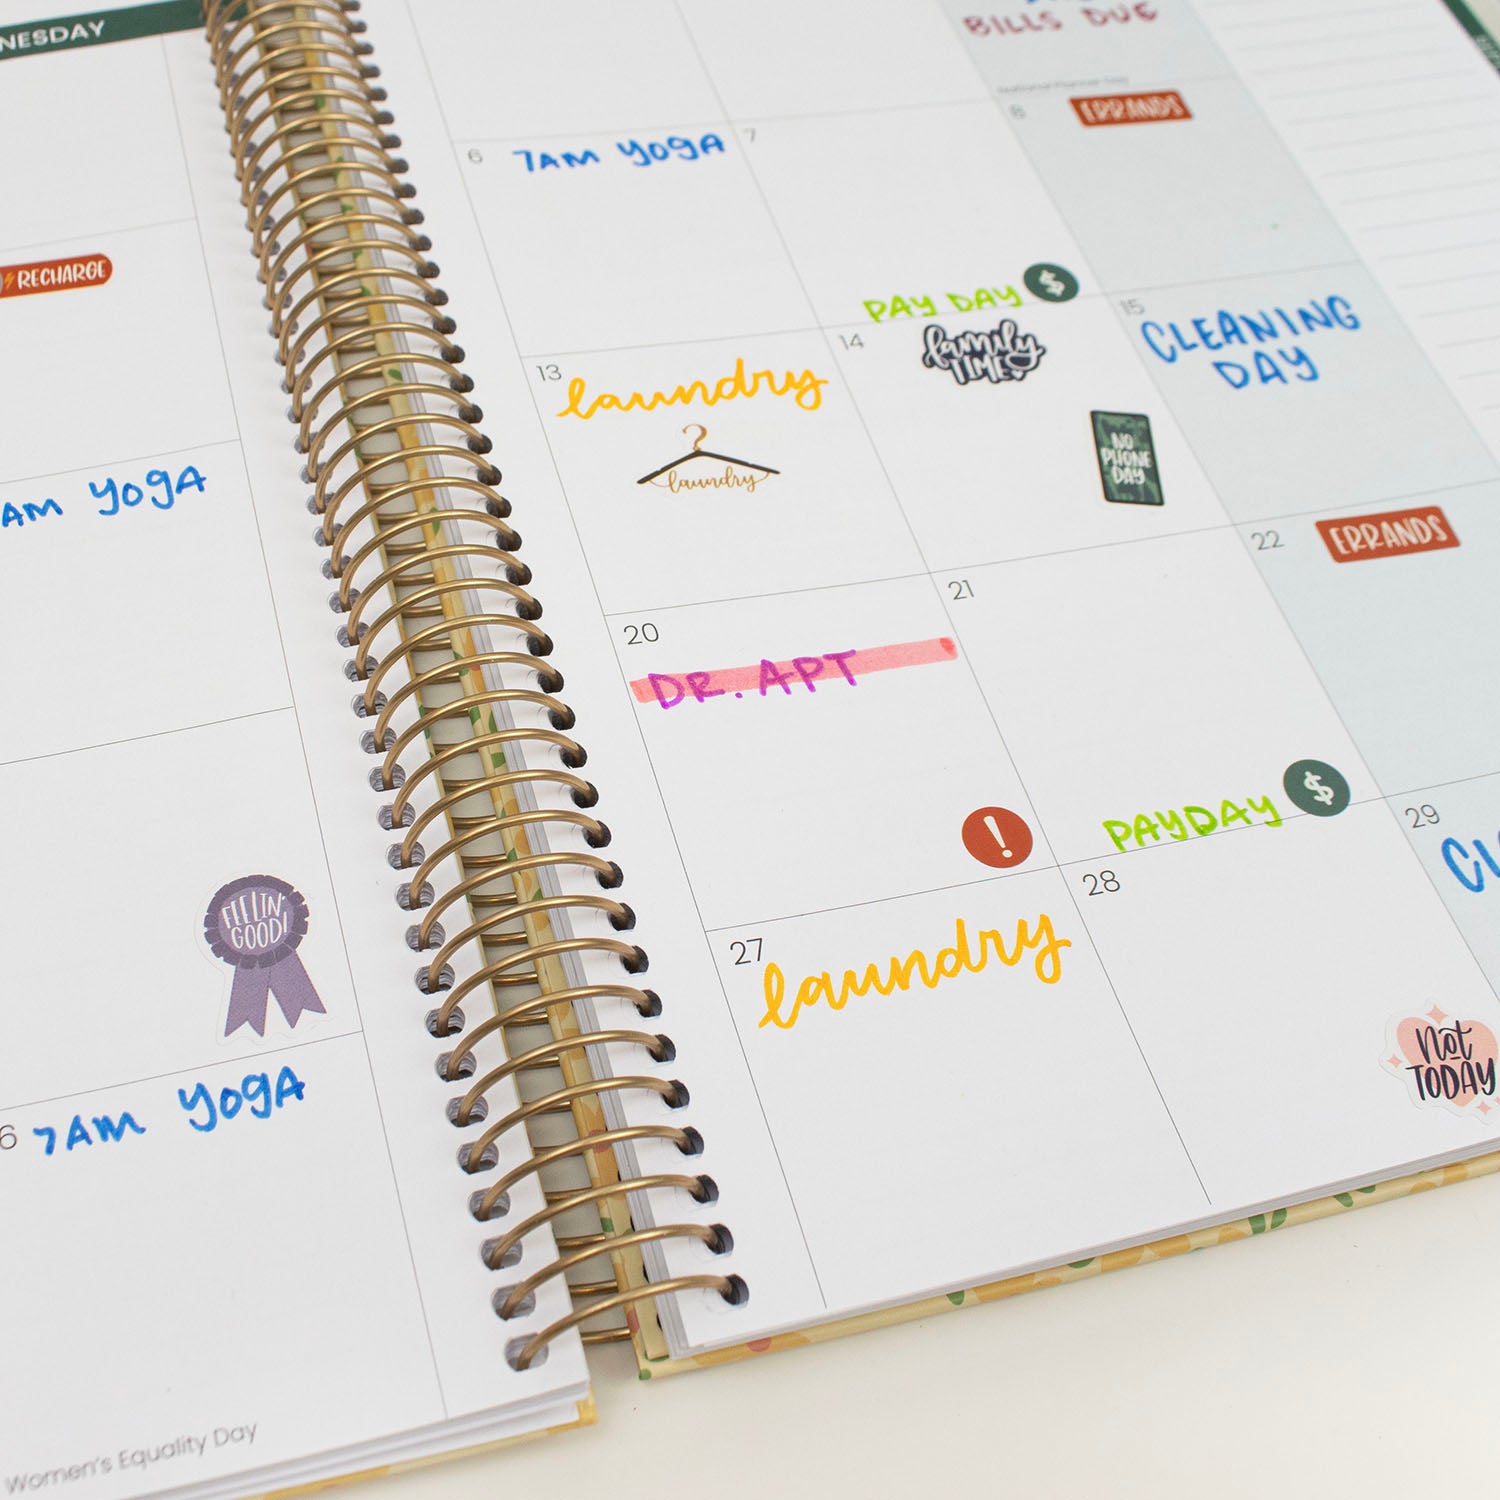 NESDAY
RECHARGE
AM YOGA
FEELIN'
GOOD!
6 7AM YOGA
Women's Equality Day
BILLS DUE
6 7AM YOGA
7
PAY DAY $
8
ERRANDS
13
laundry
laundry
14
family
TIME
NO
PHONE
DAY
15
CLEANING
DAY
20
DR. APT
!
21
PAYDAY $
22
ERRANDS
27
laundry
28
Not
TODAY
29